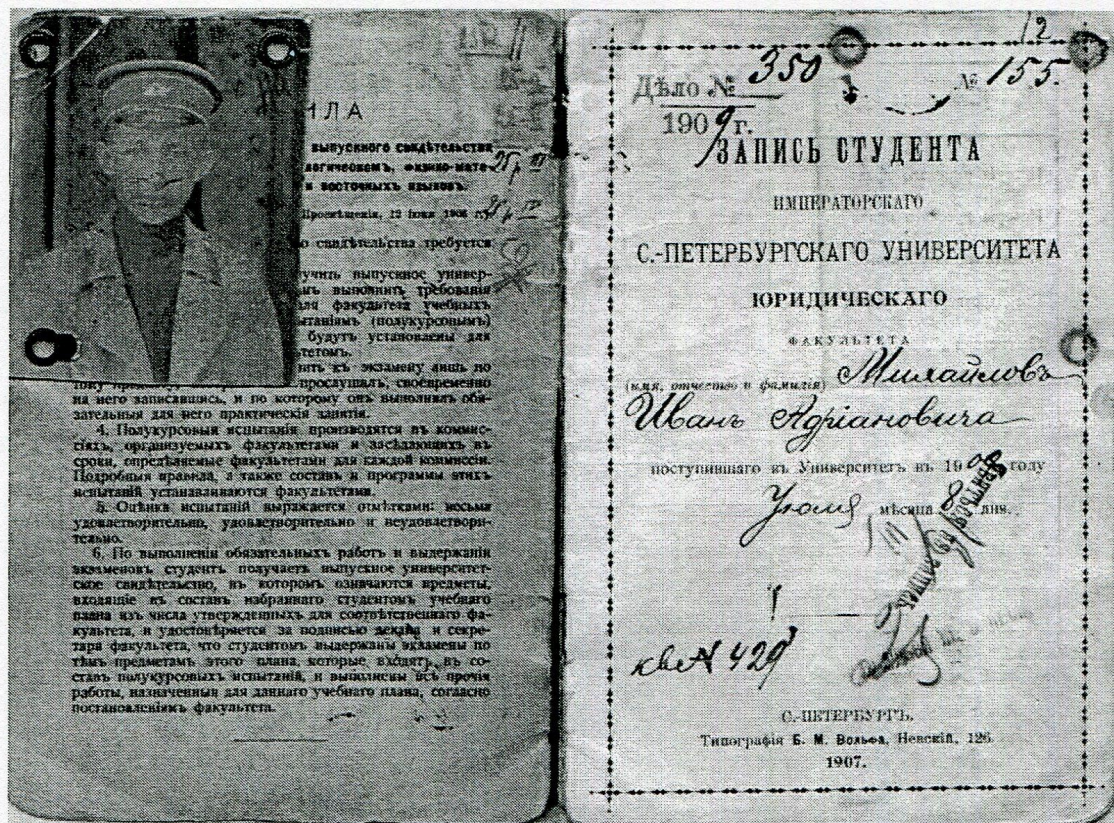 ИЛА
выпускного свидѣтельства
логическомъ, физико-мате-
и восточныхъ языковъ.
Просвѣщенія, 12 іюня 1906 г.
о свидѣтельства требуется
учить выпускное универ-
мъ выполнить требованія
ля факультета учебныхъ
ытаніямъ (полукурсовымъ)
будутъ установлены для
ьтетомъ.
ить къ экзамену лишь по
прослушалъ, своевременно
на него записавшись, и по которому онъ выполнилъ обя-
зательныя для него практическія занятія.
4. Полукурсовыя испытанія производятся въ комис-
сіяхъ, организуемыхъ факультетами и засѣдающихъ въ
сроки, опредѣляемые факультетами для каждой коммиссіи.
Подробныя правила, а также составъ и программы этихъ
испытаній устанавливаются факультетами.
5. Оцѣнка испытаній выражается отмѣтками: весьма
удовлетворительно, удовлетворительно и неудовлетвори-
тельно.
6. По выполненіи обязательныхъ работъ и выдержаніи
экзаменовъ студентъ получаетъ выпускное университет-
ское свидѣтельство, въ которомъ означаются предметы,
входящіе въ составъ избраннаго студентомъ учебнаго
плана изъ числа утвержденныхъ для соотвѣтственнаго фа-
культета, и удостовѣряется за подписью декана и секре-
таря факультета, что студентомъ выдержаны экзамены по
тѣмъ предметамъ этого плана, которые входятъ въ со-
ставъ полукурсовыхъ испытаній, и выполнены всѣ прочія
работы, назначенныя для даннаго учебнаго плана, согласно
постановленіямъ факультета.
12
Дѣло № 350 № 155.
1909 г.
ЗАПИСЬ СТУДЕНТА
ИМПЕРАТОРСКАГО
С.-ПЕТЕРБУРГСКАГО УНИВЕРСИТЕТА
ЮРИДИЧЕСКАГО
ФАКУЛЬТЕТА
(имя, отчество и фамилія) Михайловъ
Иванъ Адріановича
поступившаго въ Университетъ въ 190 году
Іюля мѣсяца 8 дня.
кв № 429
С.-ПЕТЕРБУРГЪ.
Типографія Б. М. Вольфа, Невскій, 126.
1907.